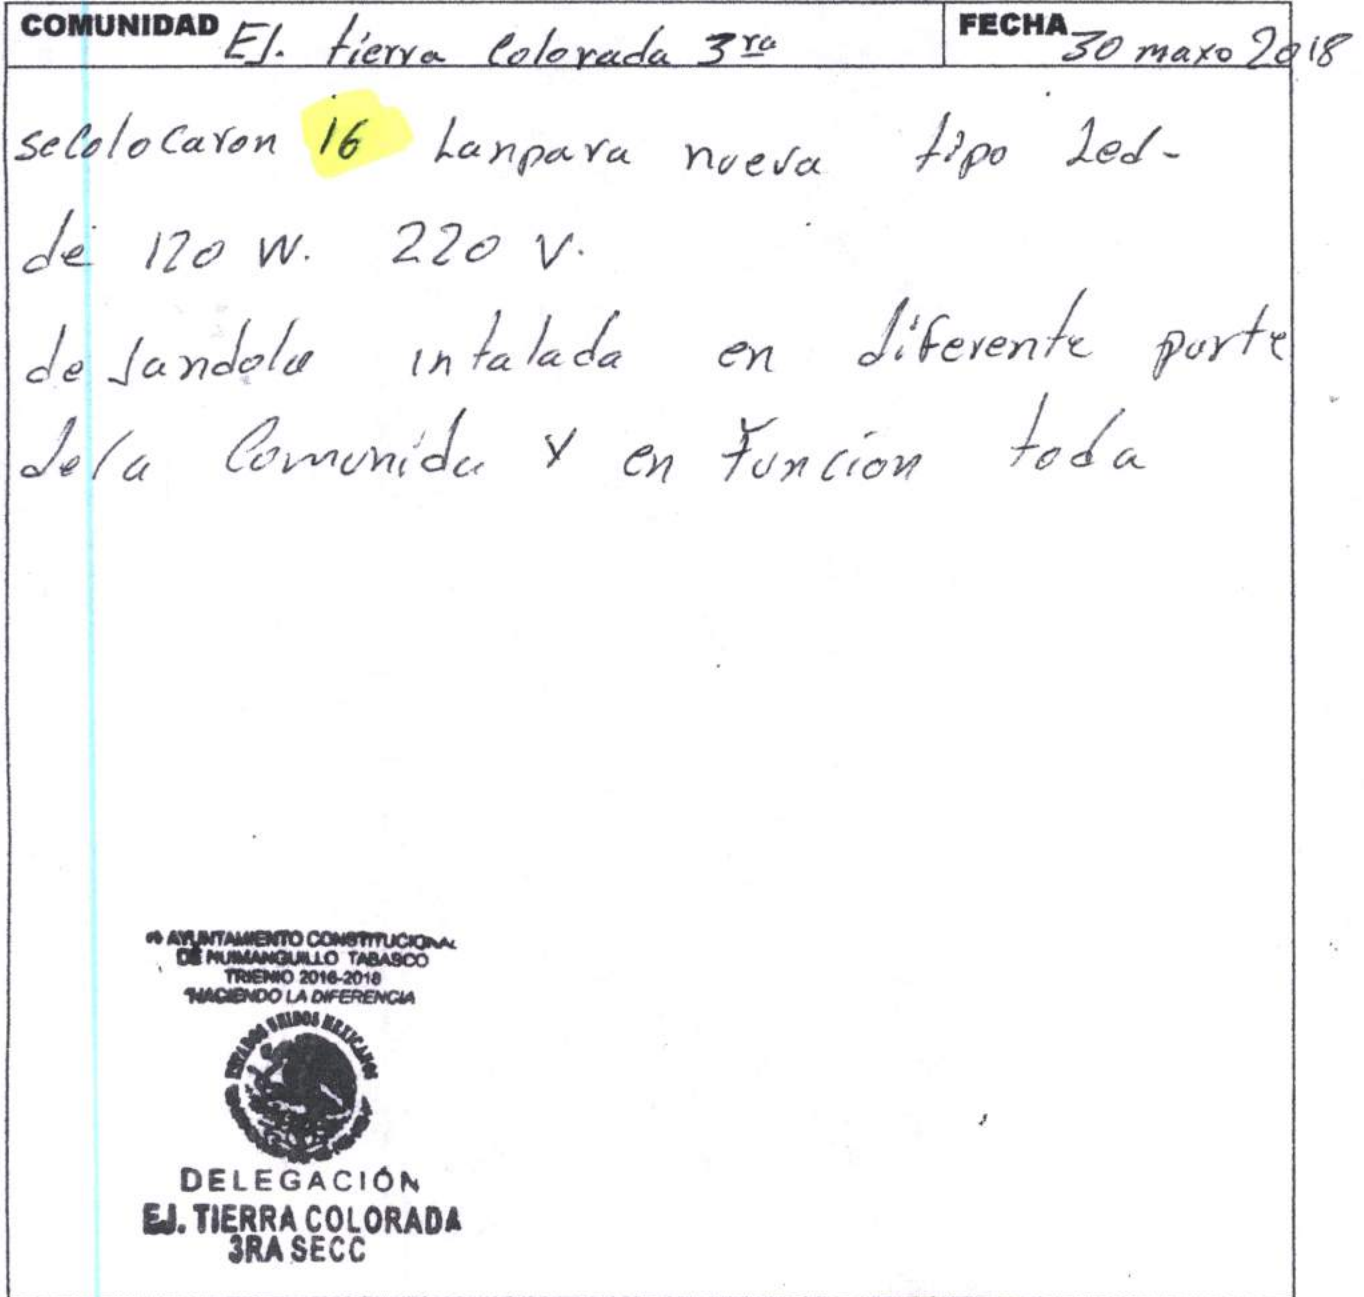 COMUNIDAD EJ. tierra Colorada 3ra
FECHA 30 maxo 2018
se colocaron 16 Lanpara nueva tipo Led-
de 120 W. 220 V.
de Jandola intalada en diferente parte
dela Comunida y en función toda
AYUNTAMIENTO CONSTITUCIONAL
DE HUIMANGUILLO TABASCO
TRIENIO 2016-2018
"HACIENDO LA DIFERENCIA
ESTADOS UNIDOS MEXICANOS
DELEGACIÓN
EJ. TIERRA COLORADA
3RA SECC